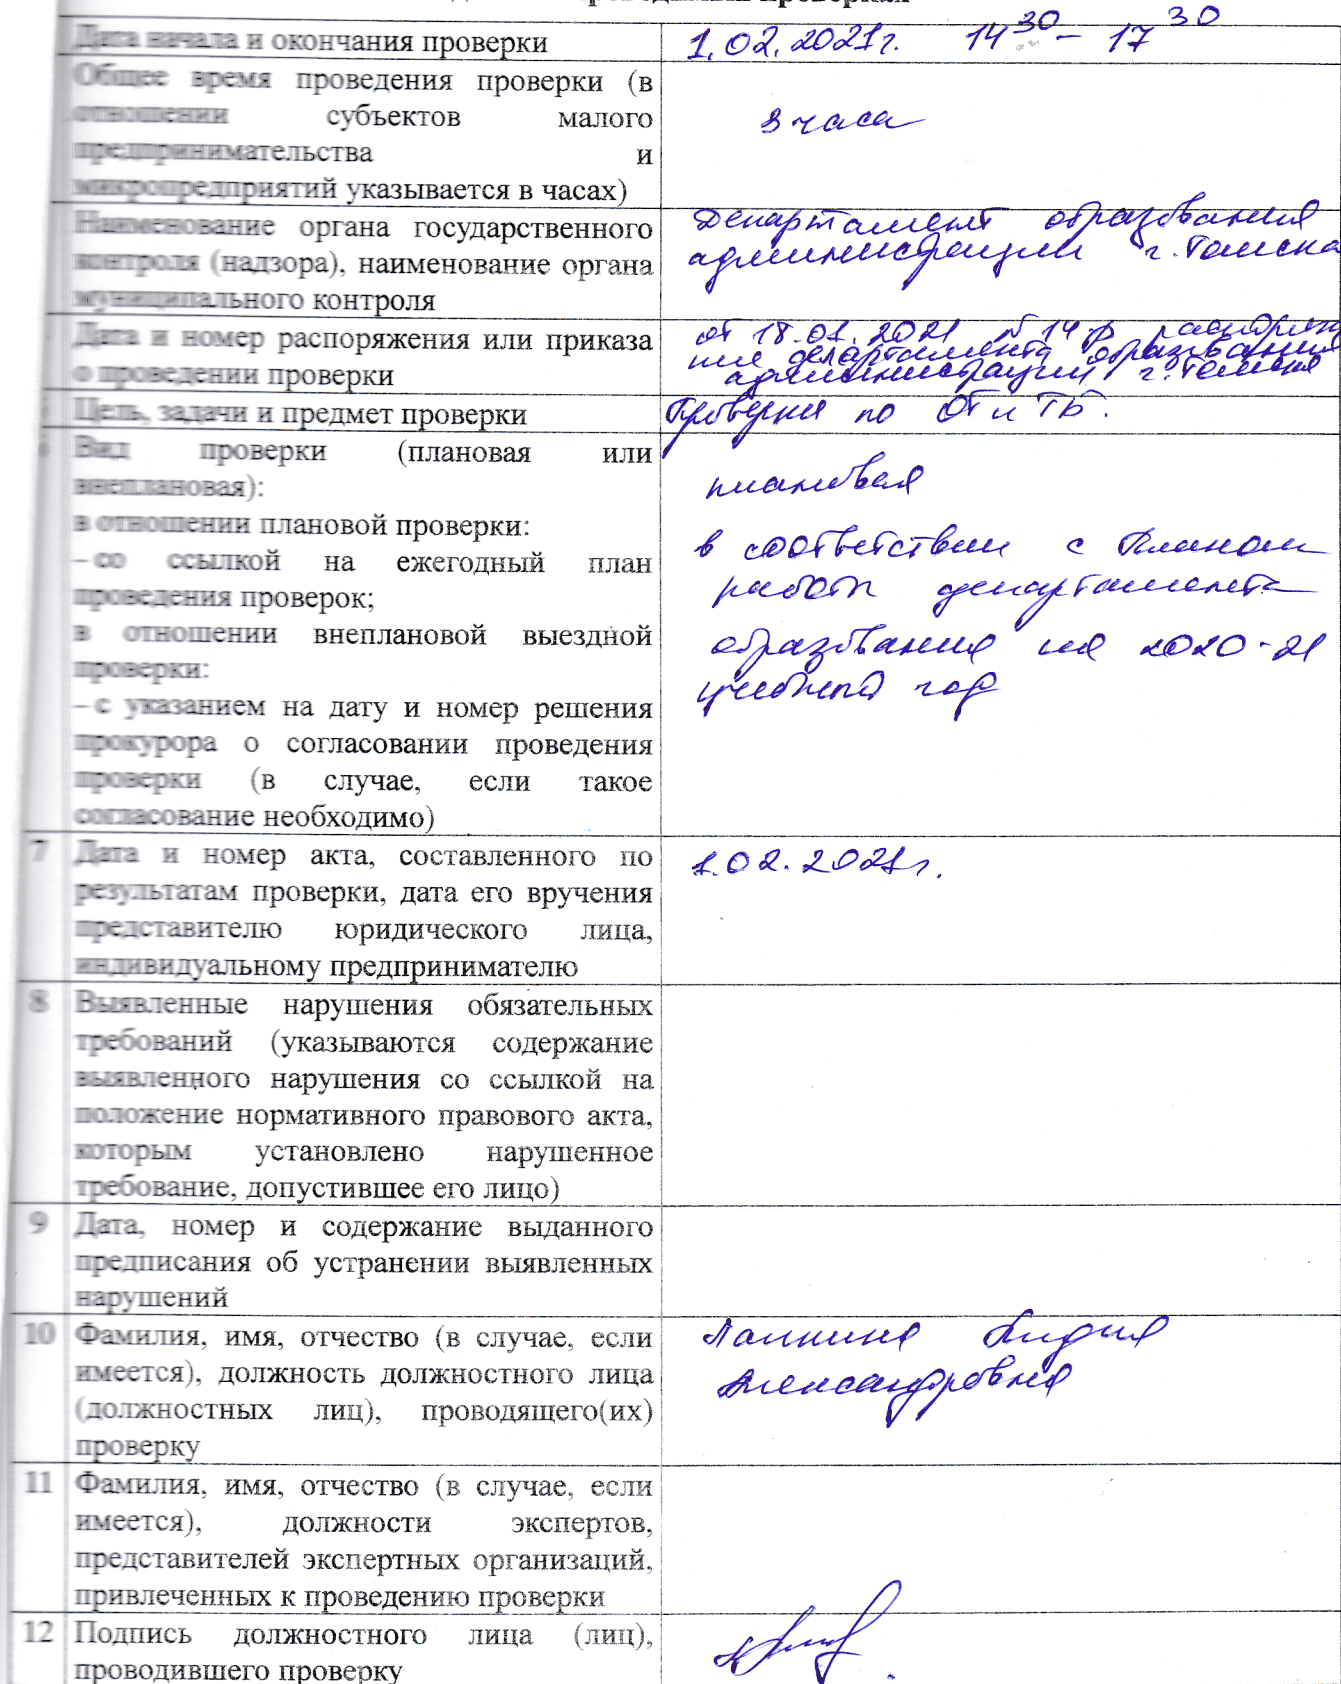 проверках
Дата начала и окончания проверки
1.02.2021г. 14 30 – 17 30
Общее время проведения проверки (в
отношении субъектов малого
предпринимательства и
микропредприятий указывается в часах)
3 часа
Наименование органа государственного
контроля (надзора), наименование органа
муниципального контроля
Департамент образования
администрации г. Томска
Дата и номер распоряжения или приказа
о проведении проверки
от 18.01.2021 №14р распоряже
ние департамента образования
администрации г. Томска
Цель, задачи и предмет проверки
Проверка по ОТ и ТБ.
Вид проверки (плановая или
внеплановая):
в отношении плановой проверки:
– со ссылкой на ежегодный план
проведения проверок;
в отношении внеплановой выездной
проверки:
– с указанием на дату и номер решения
прокурора о согласовании проведения
проверки (в случае, если такое
согласование необходимо)
плановая
в соответствии с Планом
работы департамента
образования на 2020-21
учебный год
7 Дата и номер акта, составленного по
результатам проверки, дата его вручения
представителю юридического лица,
индивидуальному предпринимателю
1.02.2021г.
8 Выявленные нарушения обязательных
требований (указываются содержание
выявленного нарушения со ссылкой на
положение нормативного правового акта,
которым установлено нарушенное
требование, допустившее его лицо)
9 Дата, номер и содержание выданного
предписания об устранении выявленных
нарушений
10 Фамилия, имя, отчество (в случае, если
имеется), должность должностного лица
(должностных лиц), проводящего(их)
проверку
Лидия
Александровна
11 Фамилия, имя, отчество (в случае, если
имеется), должности экспертов,
представителей экспертных организаций,
привлеченных к проведению проверки
12 Подпись должностного лица (лиц),
проводившего проверку